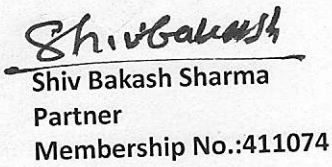 Shivbakash
Shiv Bakash Sharma
Partner
Membership No.:411074